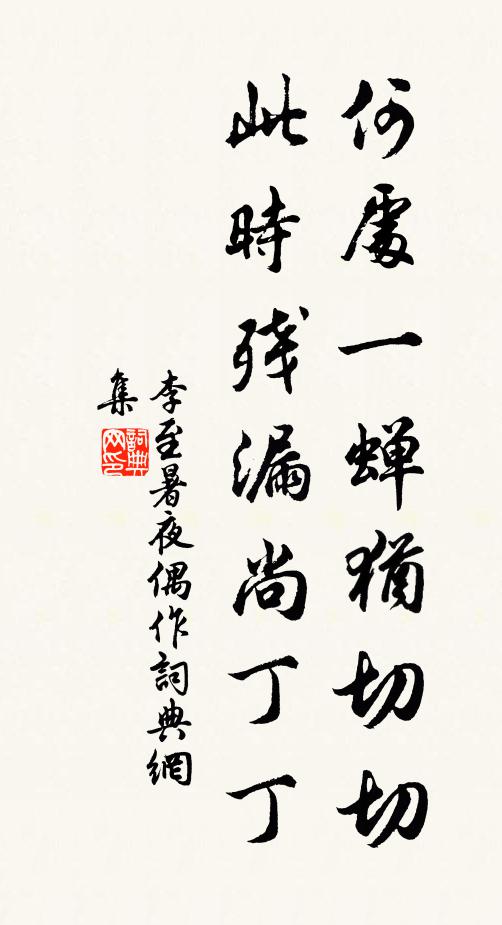 何處一蝉猶切切
此時残漏尚丁丁
李至暑夜偶作詞典網
集
詞典
网印